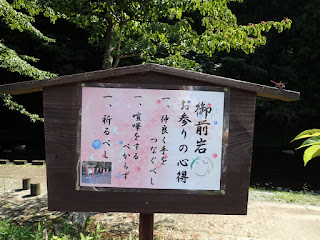 御前岩
お参りの心得
一、仲良く手を
つなぐべし
一、喧嘩をする
べからず
一、祈るべし